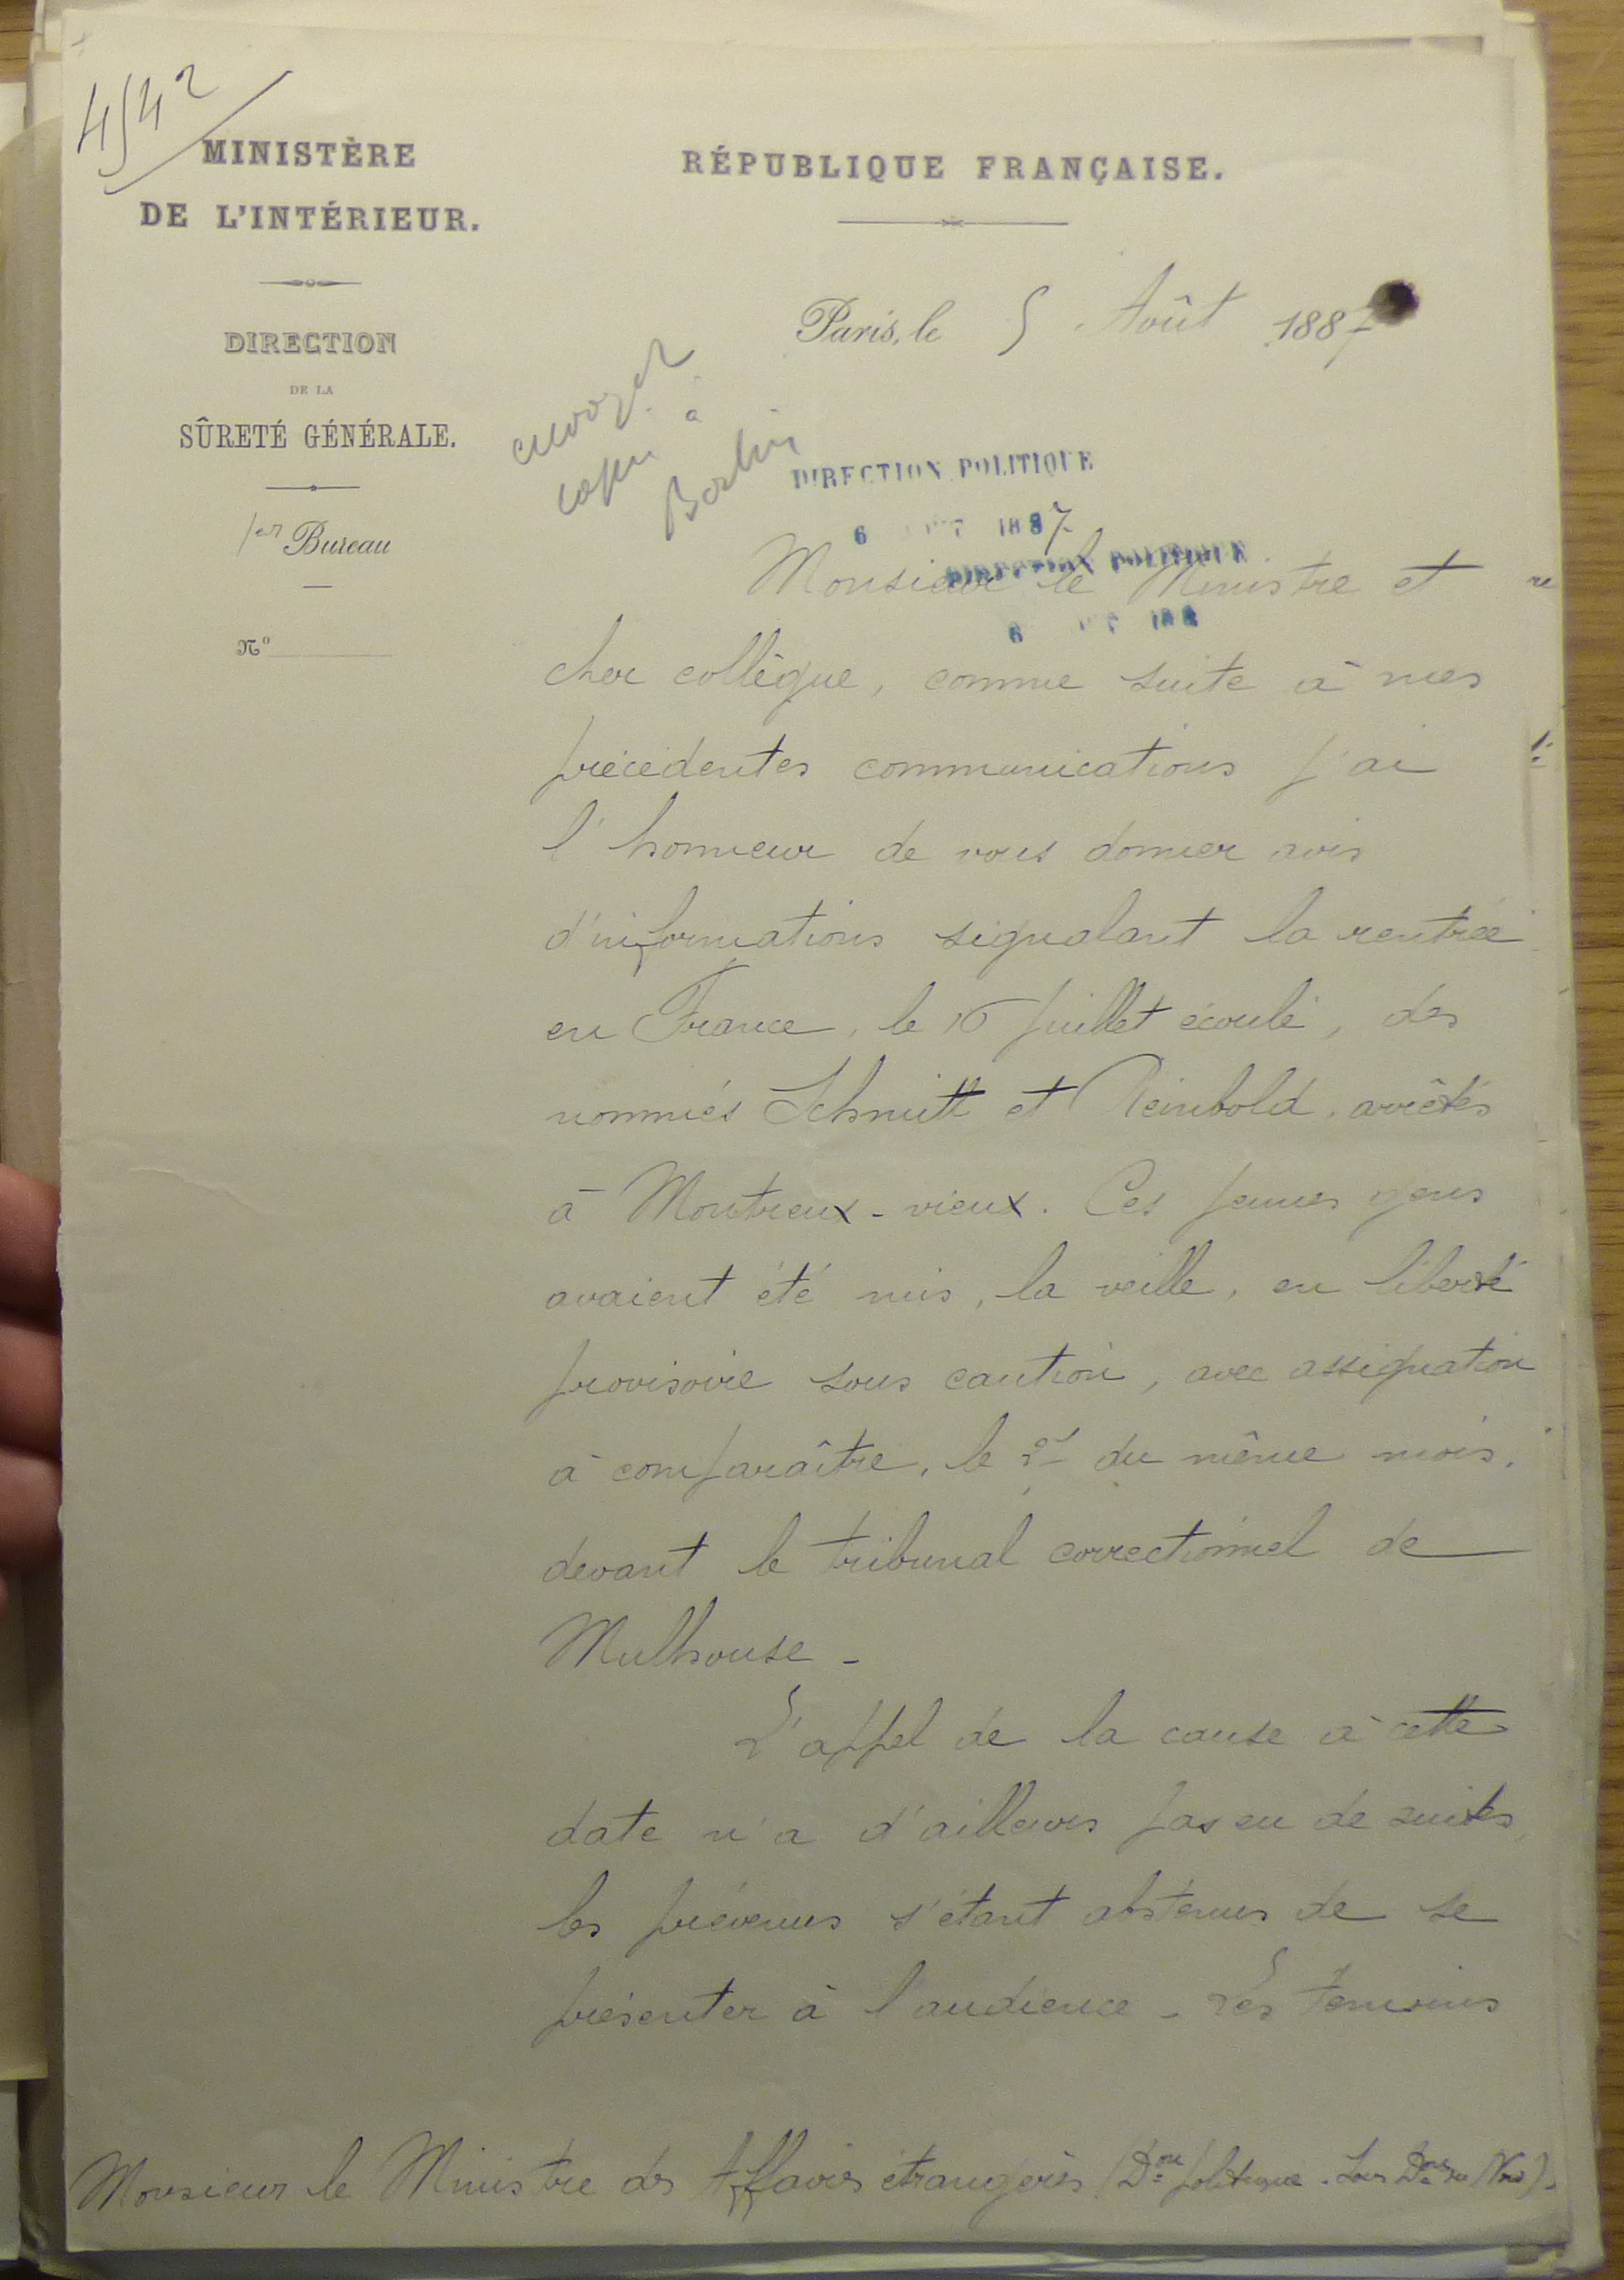 4542
MINISTÈRE
DE L'INTÉRIEUR.
DIRECTION
DE LA
SÛRETÉ GÉNÉRALE.
1er Bureau
N°
RÉPUBLIQUE FRANÇAISE.
Paris, le 5 Août 1887
envoyer
copie à
Berlin
DIRECTION POLITIQUE
6 1887
DIRECTION POLITIQUE
6 188
Monsieur le Ministre et
cher collègue, comme suite à mes
précédentes communications j'ai
l'honneur de vous donner avis
d'informations signalant la rentrée
en France, le 16 juillet écoulé, des
nommés Schmitt et Reinbold, arrêtés
à Montreux-vieux. Ces jeunes gens
avaient été mis, la veille, en liberté
provisoire sous caution, avec assignation
à comparaître, le du même mois,
devant le tribunal correctionnel de
Mulhouse -
L'appel de la cause à cette
date n'a d'ailleurs pas eu de suites,
les prévenus s'étant abstenus de se
présenter à l'audience - Les témoins
Monsieur le Ministre des Affaires étrangères (Don politique. Sous Don du Nord).